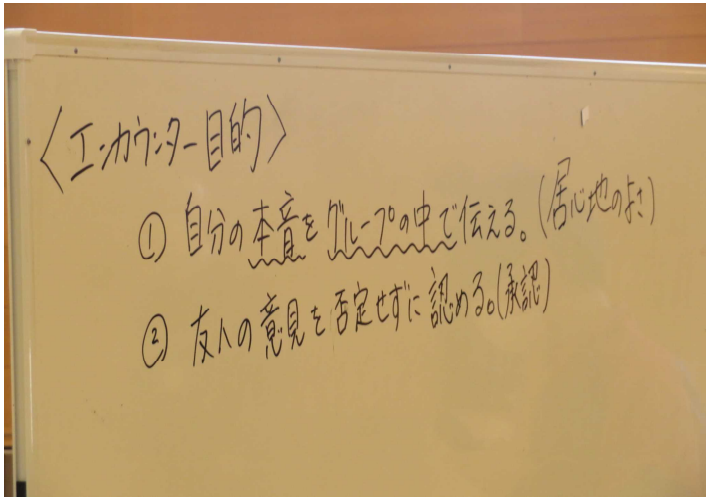 〈エンカウンター目的〉
① 自分の本音をグループの中で伝える。(居心地のよさ)
② 友人の意見を否定せずに認める。(承認)